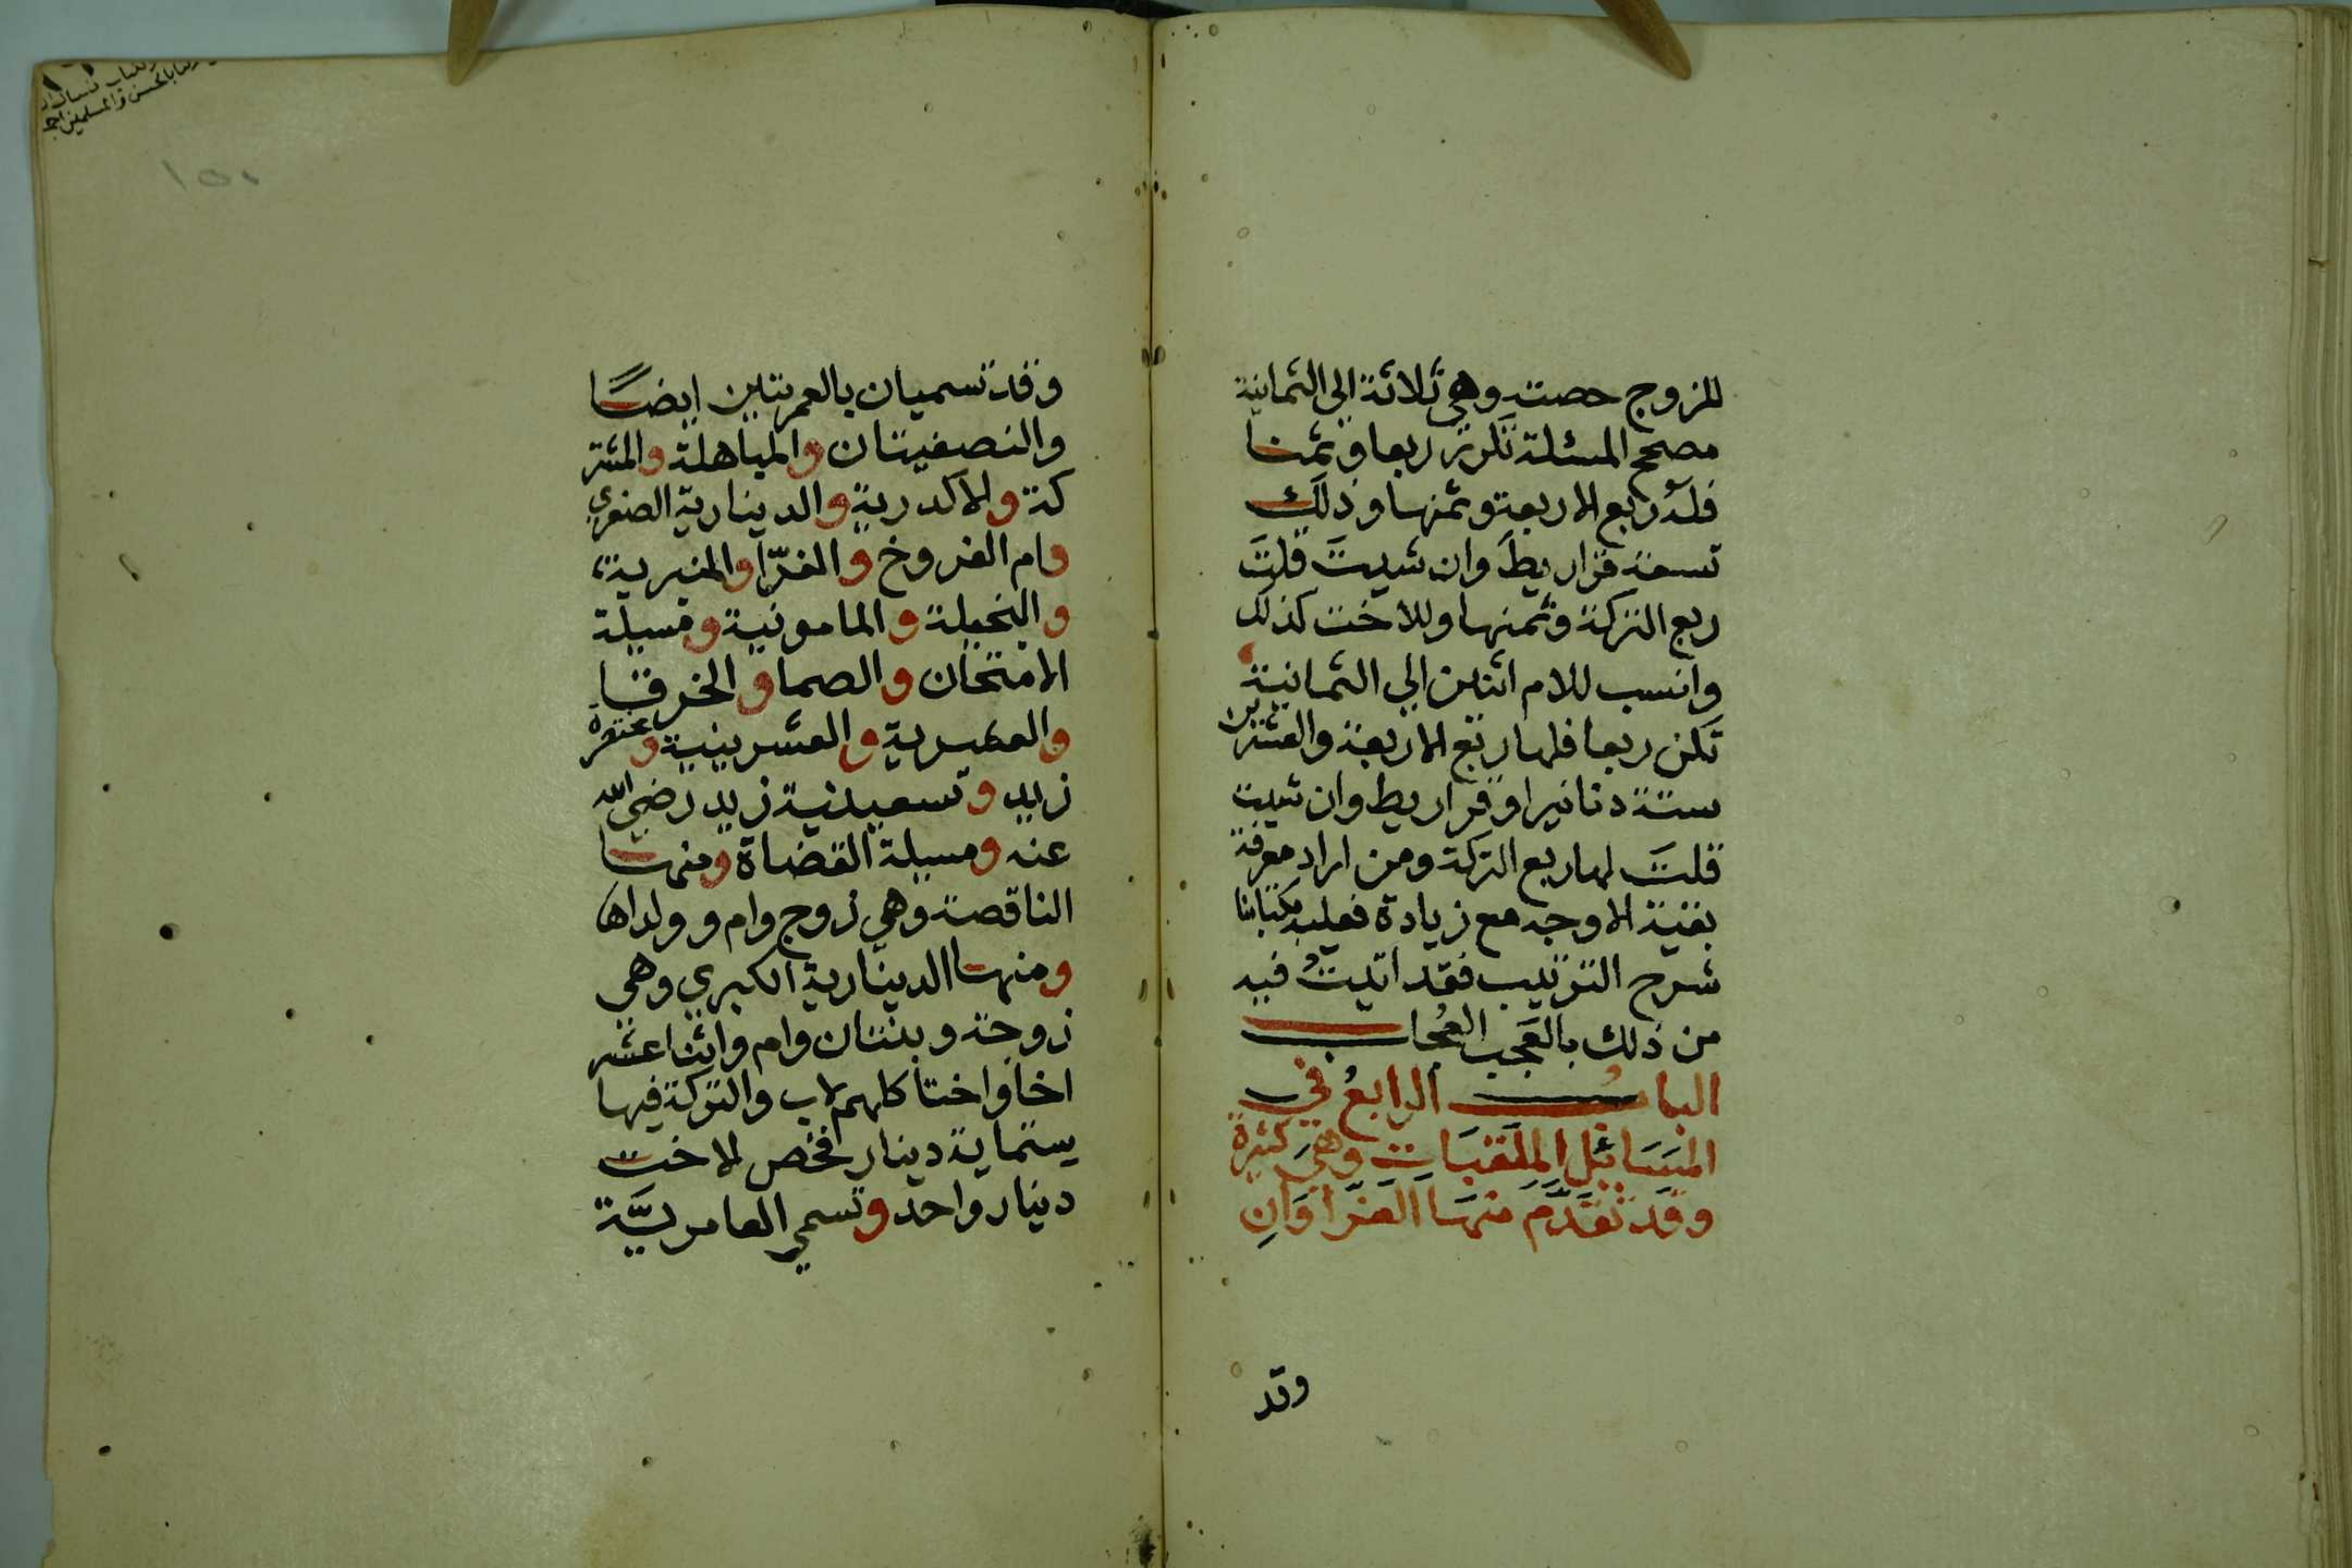 للزوج حصته وهي ثلاثة الى الثمانية
مصحح المسئلة تكن ربعا وثمنا
فله ربع الاربعة وثمنها وذلك
تسعة قراريط وان شيت قلت
ربع التركة وثمنها وللاخت كذلك
وانسب للام اثنين الي الثمانية
تكن ربعا فلها ربع الاربعة والعشرين
ستة دنانير او قراريط وان شيت
قلت لها ربع التركة ومن اراد معرفة
بقية الاوجه مع زيادة فعليه بكتابنا
شرح الترتيب فقد اتيت فيه
من ذلك بالعجب العجاب
الباب الرابع في
المسائل الملقبات وهي كثيرة
وقد تقدم منها الغراوان
وقد
وقد تسميان بالعمريتين ايضا
والنصفيتان والمباهلة والمشتر
كة والاكدرية والدينارية الصغري
وام الفروخ والغرا والمنبرية
والبخيلة والمامونية ومسيلة
الامتحان والصما والخرقا
والعشرية والعشرينية ومختصرة
زيد وتسعينية زيد رضي الله
عنه ومسيلة القضاة ومنها
الناقصة وهي زوج وام وولداها
ومنها الدينارية الكبري وهي
زوجة وبنتان وام واثنا عشر
اخا واختا كلهم لاب والتركة فيها
ستماية دينار فخص الاخت
دينار واحد وتسمي العامريّة
١٥١